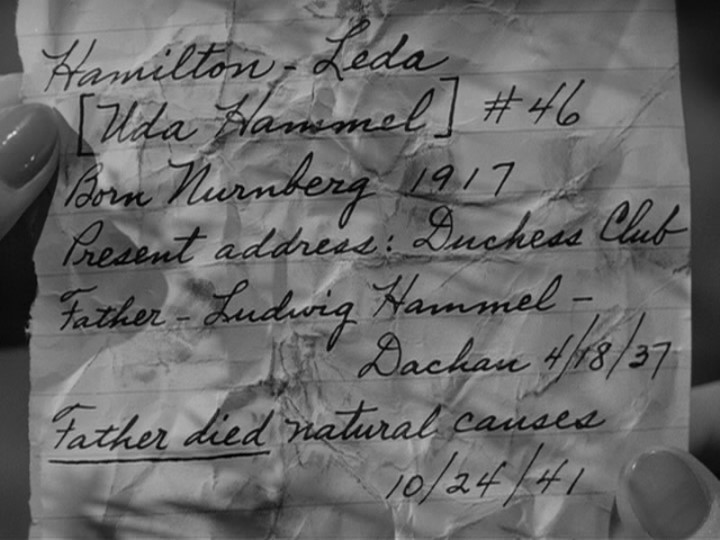 Hamilton - Leda
[Uda Hammel] #46
Born Nurnberg 1917
Present address: Duchess Club
Father - Ludwig Hammel -
Dachau 4/18/37
Father died natural causes
10/24/41